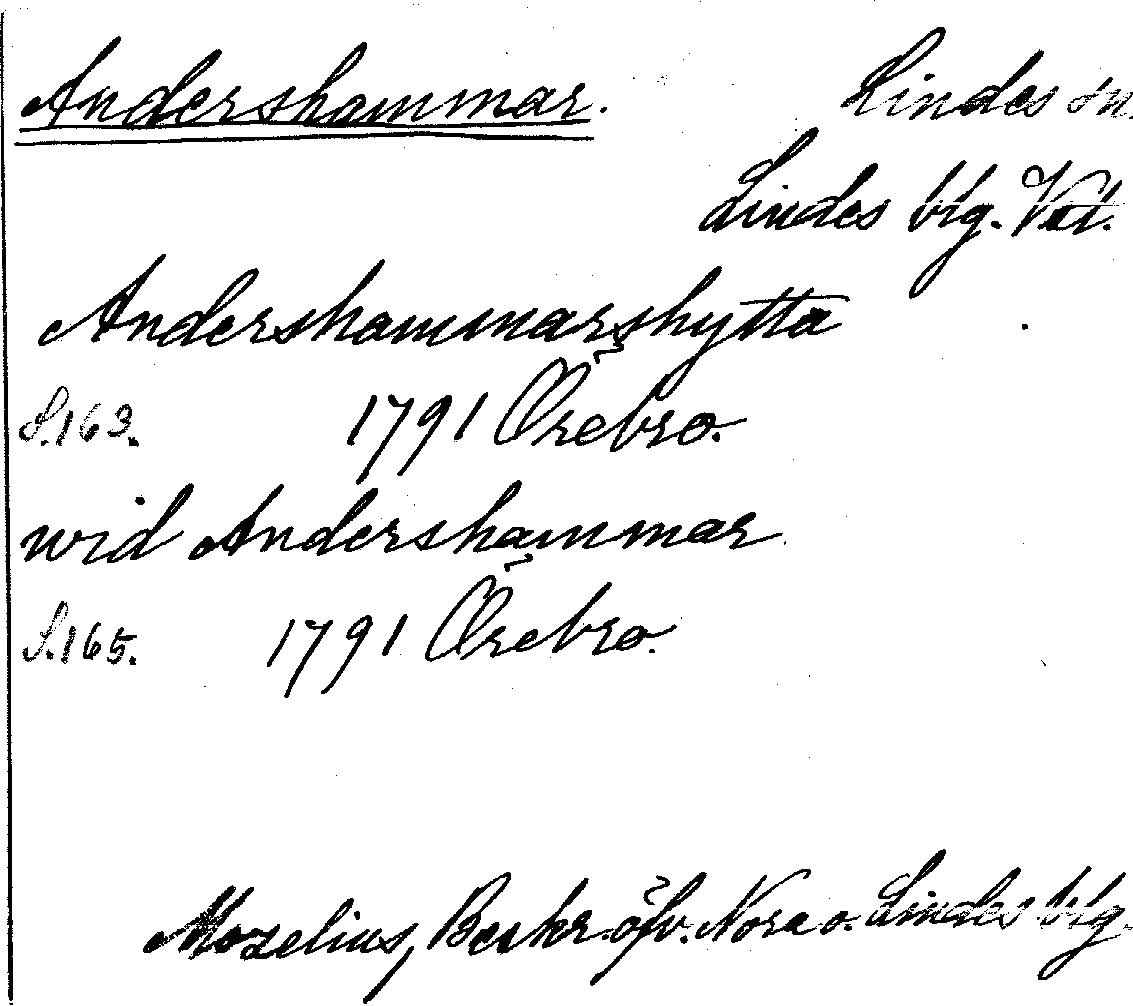 Andershammar. Lindes sn.
Lindes blg. Vstl.
Andershammarshytta
S.163. 1791 Örebro.
wid Andershammar
S.165. 1791 Örebro.
Mozelius, Beskr. öfv. Nora o. Lindes blg.